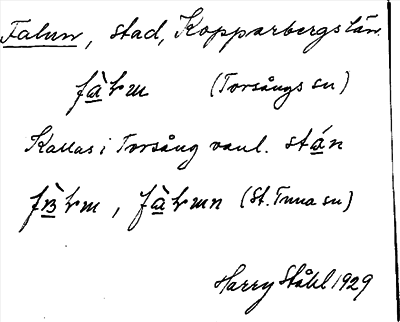 Falun, stad, Kopparbergs län.
(Torsångs sn)
Kallas i Torsång vanl. stán
(St. Tuna sn)
Harry Ståhl 1929